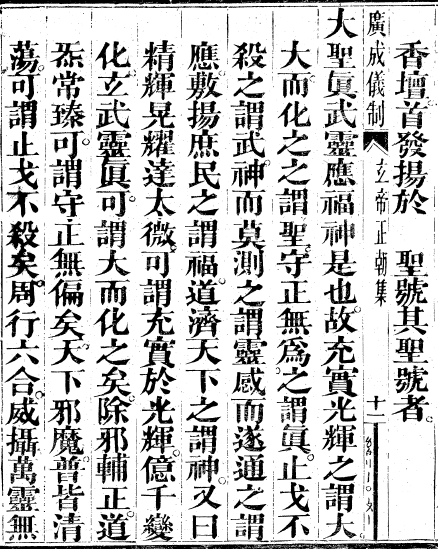 香壇首發揚於　聖號其聖號者
廣成儀制　玄帝正朝集　十一
大聖眞武靈應福神是也故充實光輝之謂大
大而化之之謂聖守正無爲之謂眞止戈不
殺之謂武神而莫測之謂靈感而遂通之謂
應敷揚庶民之謂福道濟天下之謂神又曰
精輝晃耀達太微可謂充實於光輝億千變
化玄武靈眞可謂大而化之矣除邪輔正道
炁常臻可謂守正無偏矣天下邪魔普皆清
蕩可謂止戈不殺矣周行六合威攝萬靈無